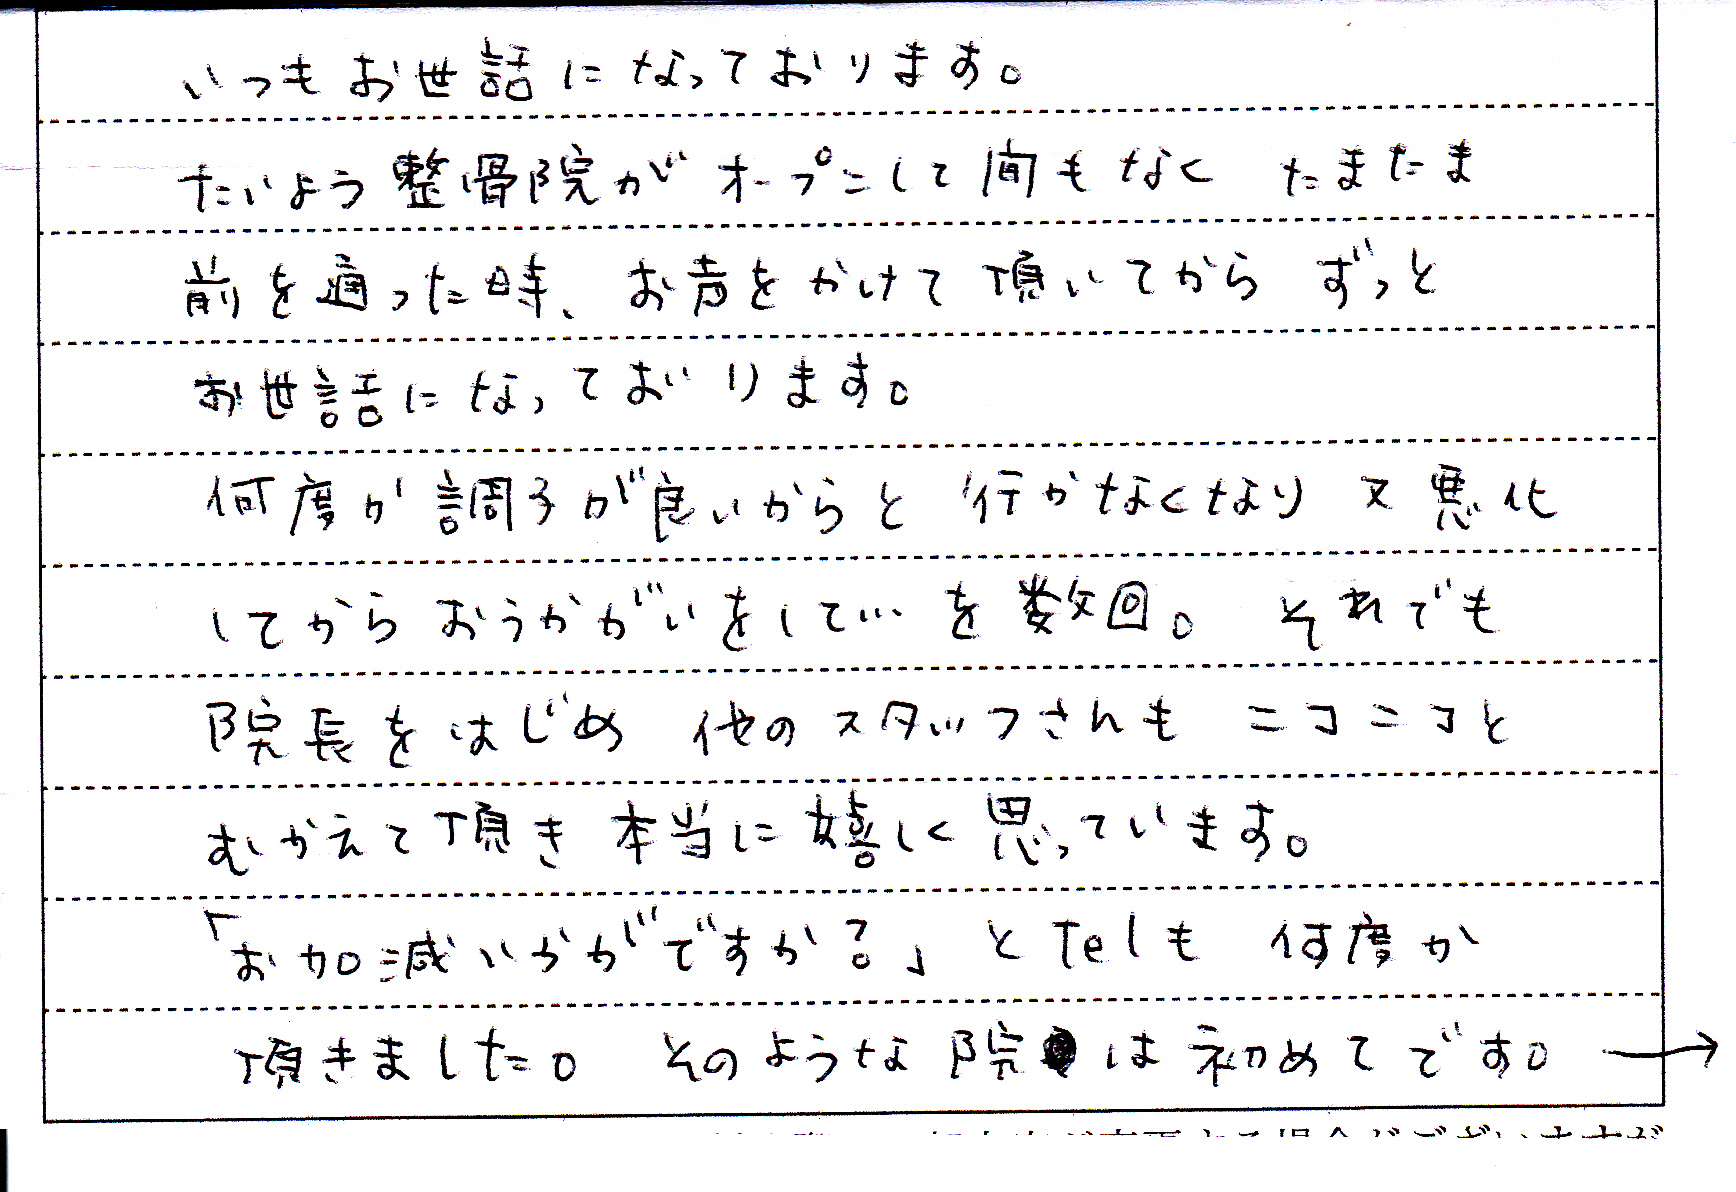 いつもお世話になっております。
たいよう整骨院がオープンして間もなく たまたま
前を通った時、お声をかけて頂いてから ずっと
お世話になっております。
何度か調子が良いからと 行かなくなり 又悪化
してから おうかがいをして… を数回。 それでも
院長をはじめ 他のスタッフさんも ニコニコと
むかえて頂き 本当に嬉しく思っています。
「お加減いかがですか?」 と Telも 何度か
頂きました。 そのような院は初めてです。→